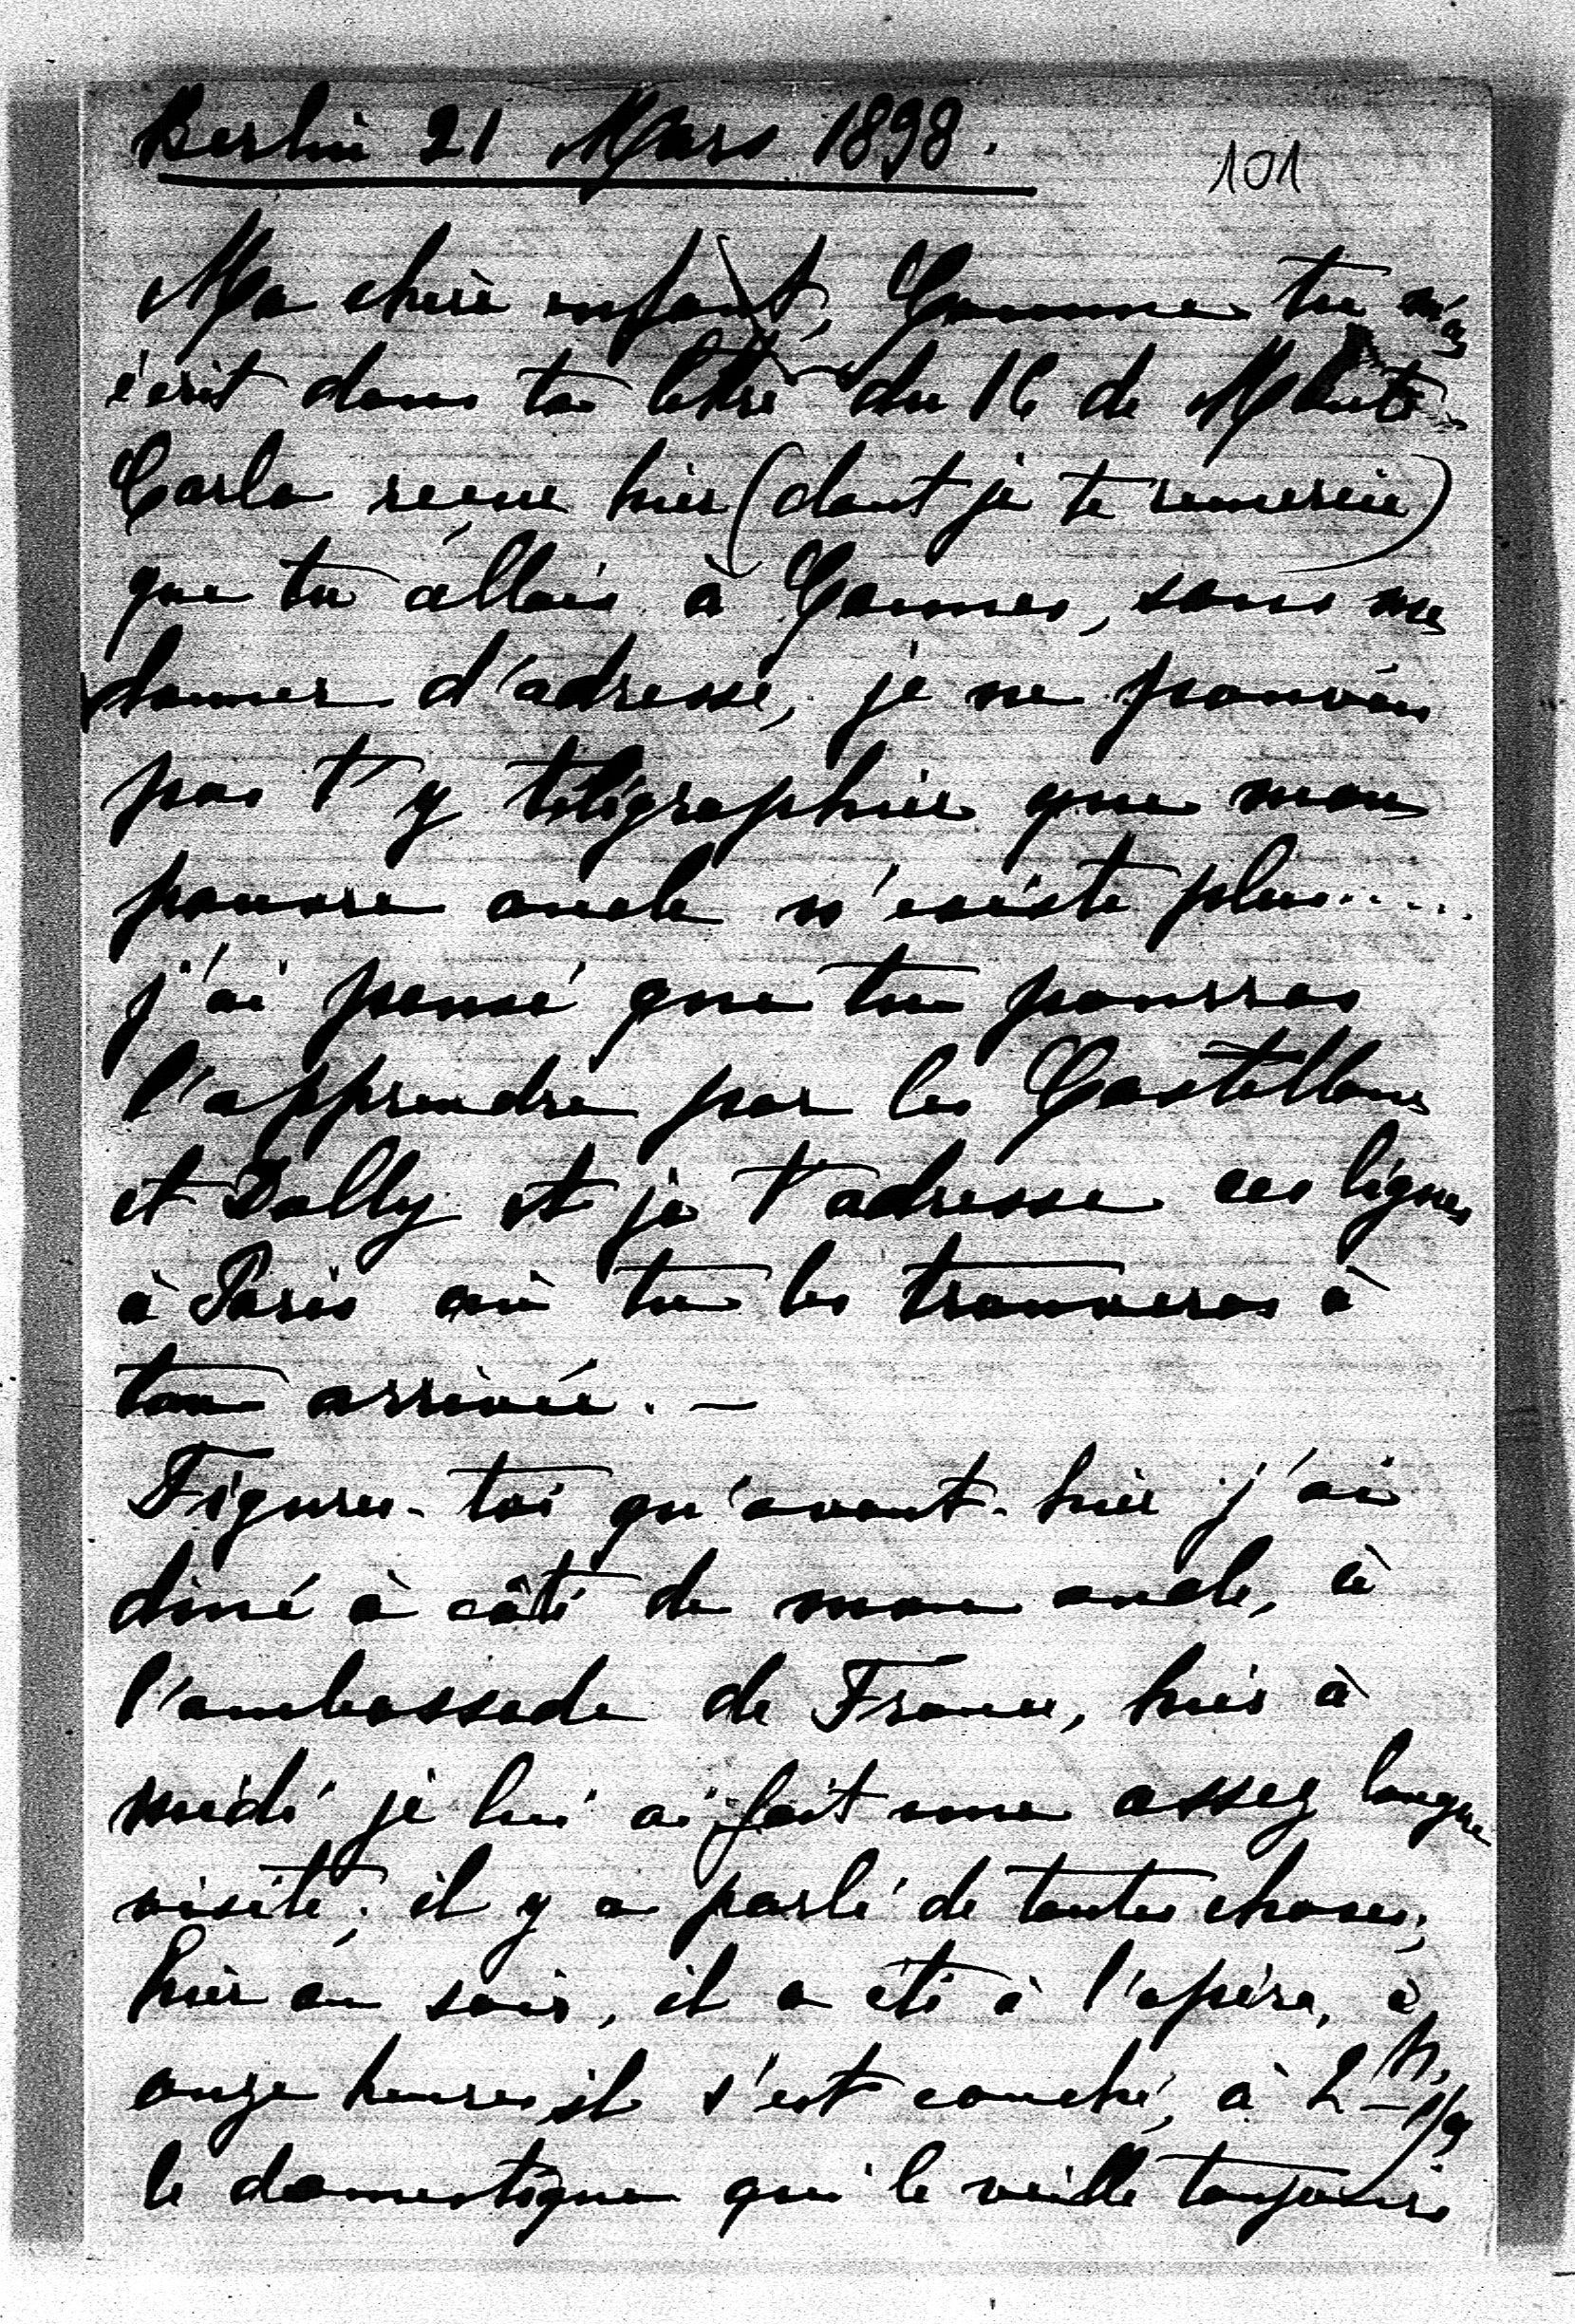 Berlin 21 Mars 1898.
101
Ma chère enfant, Comme tu m'as
écrit dans ta lettre du 16 de Monte
Carlo reçue hier (dont je te remercie)
que tu allais à Cannes, sans me
donner d'adresse, je ne pouvais
pas t'y télégraphier que mon
pauvre oncle n'existe plus.....
j'ai pensé que tu pourras
l'apprendre par les Castellane
et Dolly et je t'adresse ces lignes
à Paris où tu les trouveras à
ton arrivée. —
Figures-toi qu'avant-hier j'ai
diné à côté de mon oncle, à
l'ambassade de France, hier à
midi je lui ai fait une assez longue
visite; il y a parlé de toutes choses;
hier au soir, il a été à l'opéra, à
onze heures il s'est couché, à 2 h. 1/2
le domestique qui le veille toujours